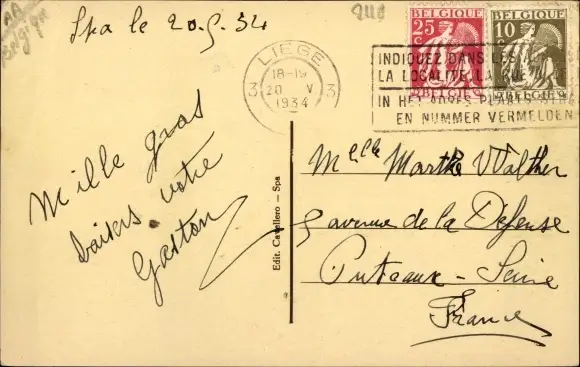 AA
Spa le 20.5.34
BELGIQUE
25 C
BELGIE
BELGIQUE
10 C
BELGIE
LIEGE
18-19
3 20 V 3
1934
INDIQUEZ DANS LES
LA LOCALITE, LA RUE
IN HET ADRES PLAATS
EN NUMMER VERMELDEN
Mille gros
baisers votre
Gaston
Edit. Cavallero — Spa
Melle Marthe Walther
5 avenue de la Défense
Puteaux - Seine
France